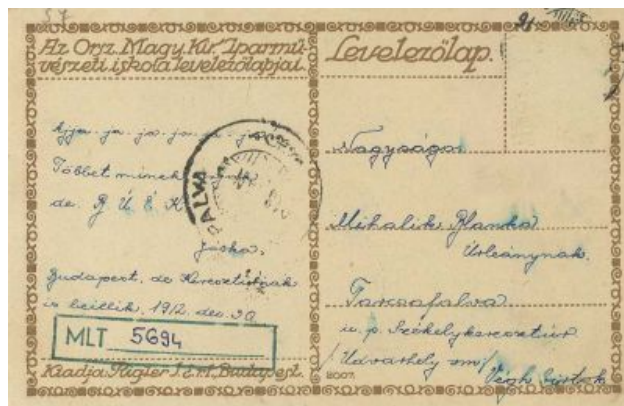 57
Az Orsz. Magy. Kir. Iparmű-
vészeti iskola levelezőlapjai.
Levelezőlap.
Ajja ja ja ja ja ja
Többet minek
de B. U. É. K.
Jóska.
Budapest, de Keresztúrnak
is beillik, 1912. dec. 30.
MLT 5694
Kiadja Rigler J. E. r. t. Budapest.
PALVA
Nagyságos
Mihalik Blanka
Úrleánynak.
Tarcsafalva
u. p. Székelykeresztúr
/Udvarhely vm/
Végh birtok
2007.